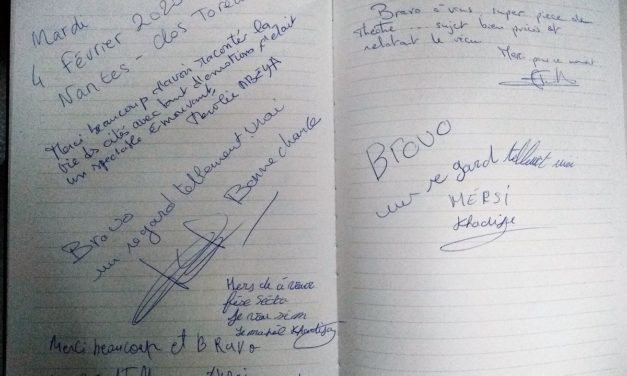 Mardi
4 Février 202
Nantes - Clos Toreau
Merci beaucoup d'avoir raconté la
vie des cités avec tant d'émotions c'était
un spectacle émouvant,
Bravo
un regard tellement vrai
Bonne chance
Mersi à vous
Je vous aim
Je mapél Khadija
Merci beaucoup et BRavo
Bravo à vous, super pièce de
théâtre ... sujet bien précis et
relatant le vécu
Merci pour ce moment
Bravo
un regard tellmet vrai
MERSi
Khadija